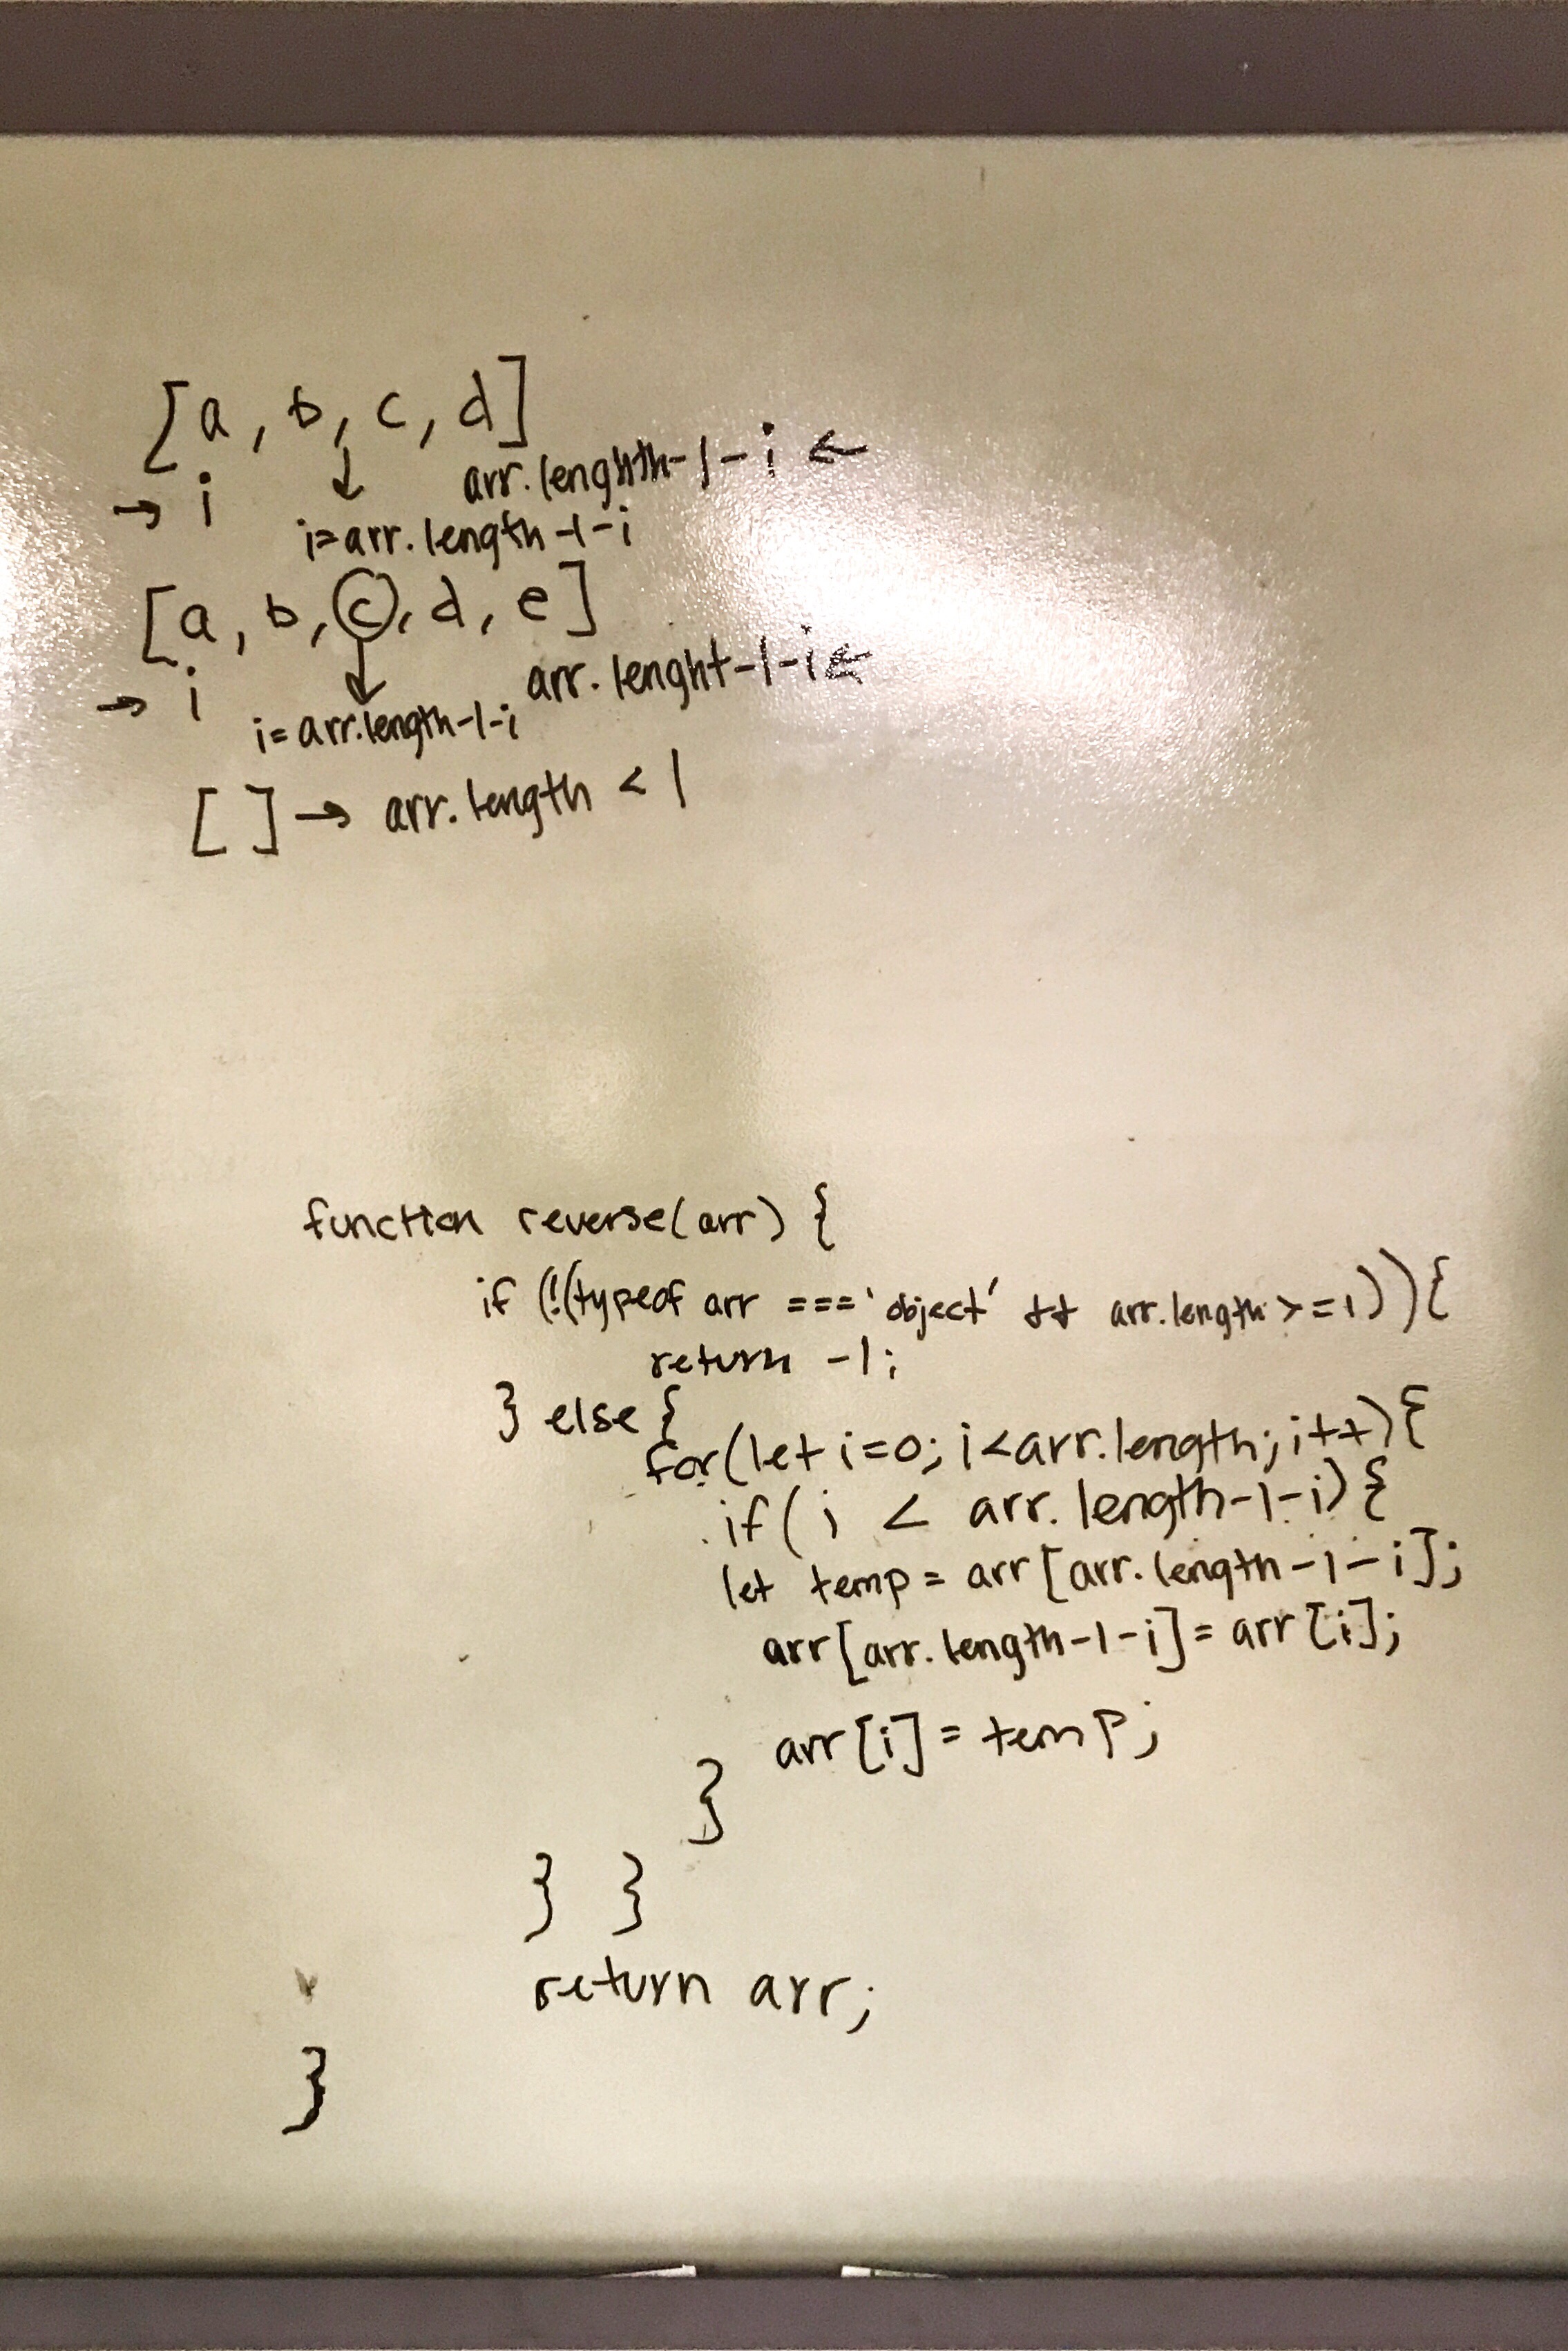 [a, b, c, d]
→ i ↓ arr.lenghth-1-i ←
i=arr.length-1-i
[a, b, c, d, e]
→ i ↓ arr.lenght-1-i ←
i=arr.length-1-i
[ ] → arr.length < 1
function reverse(arr) {
if (!(typeof arr === 'object' && arr.length >=1)){
return -1;
} else {
for(let i=0; i<arr.length; i++){
if( i < arr.length-1-i){
let temp = arr[arr.length-1-i];
arr[arr.length-1-i]= arr[i];
arr[i] = temp;
}
} }
return arr;
}